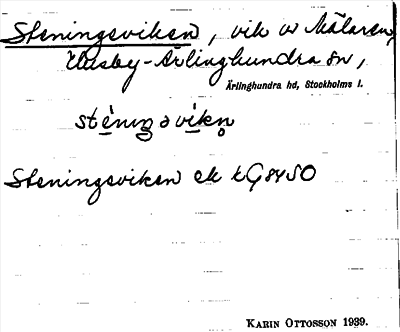 Steningeviken, vik av Mälaren,
Husby-Ärlinghundra sn,
Ärlinghundra hd, Stockholms l.
Steningeviken ek
KARIN OTTOSSON 1939.